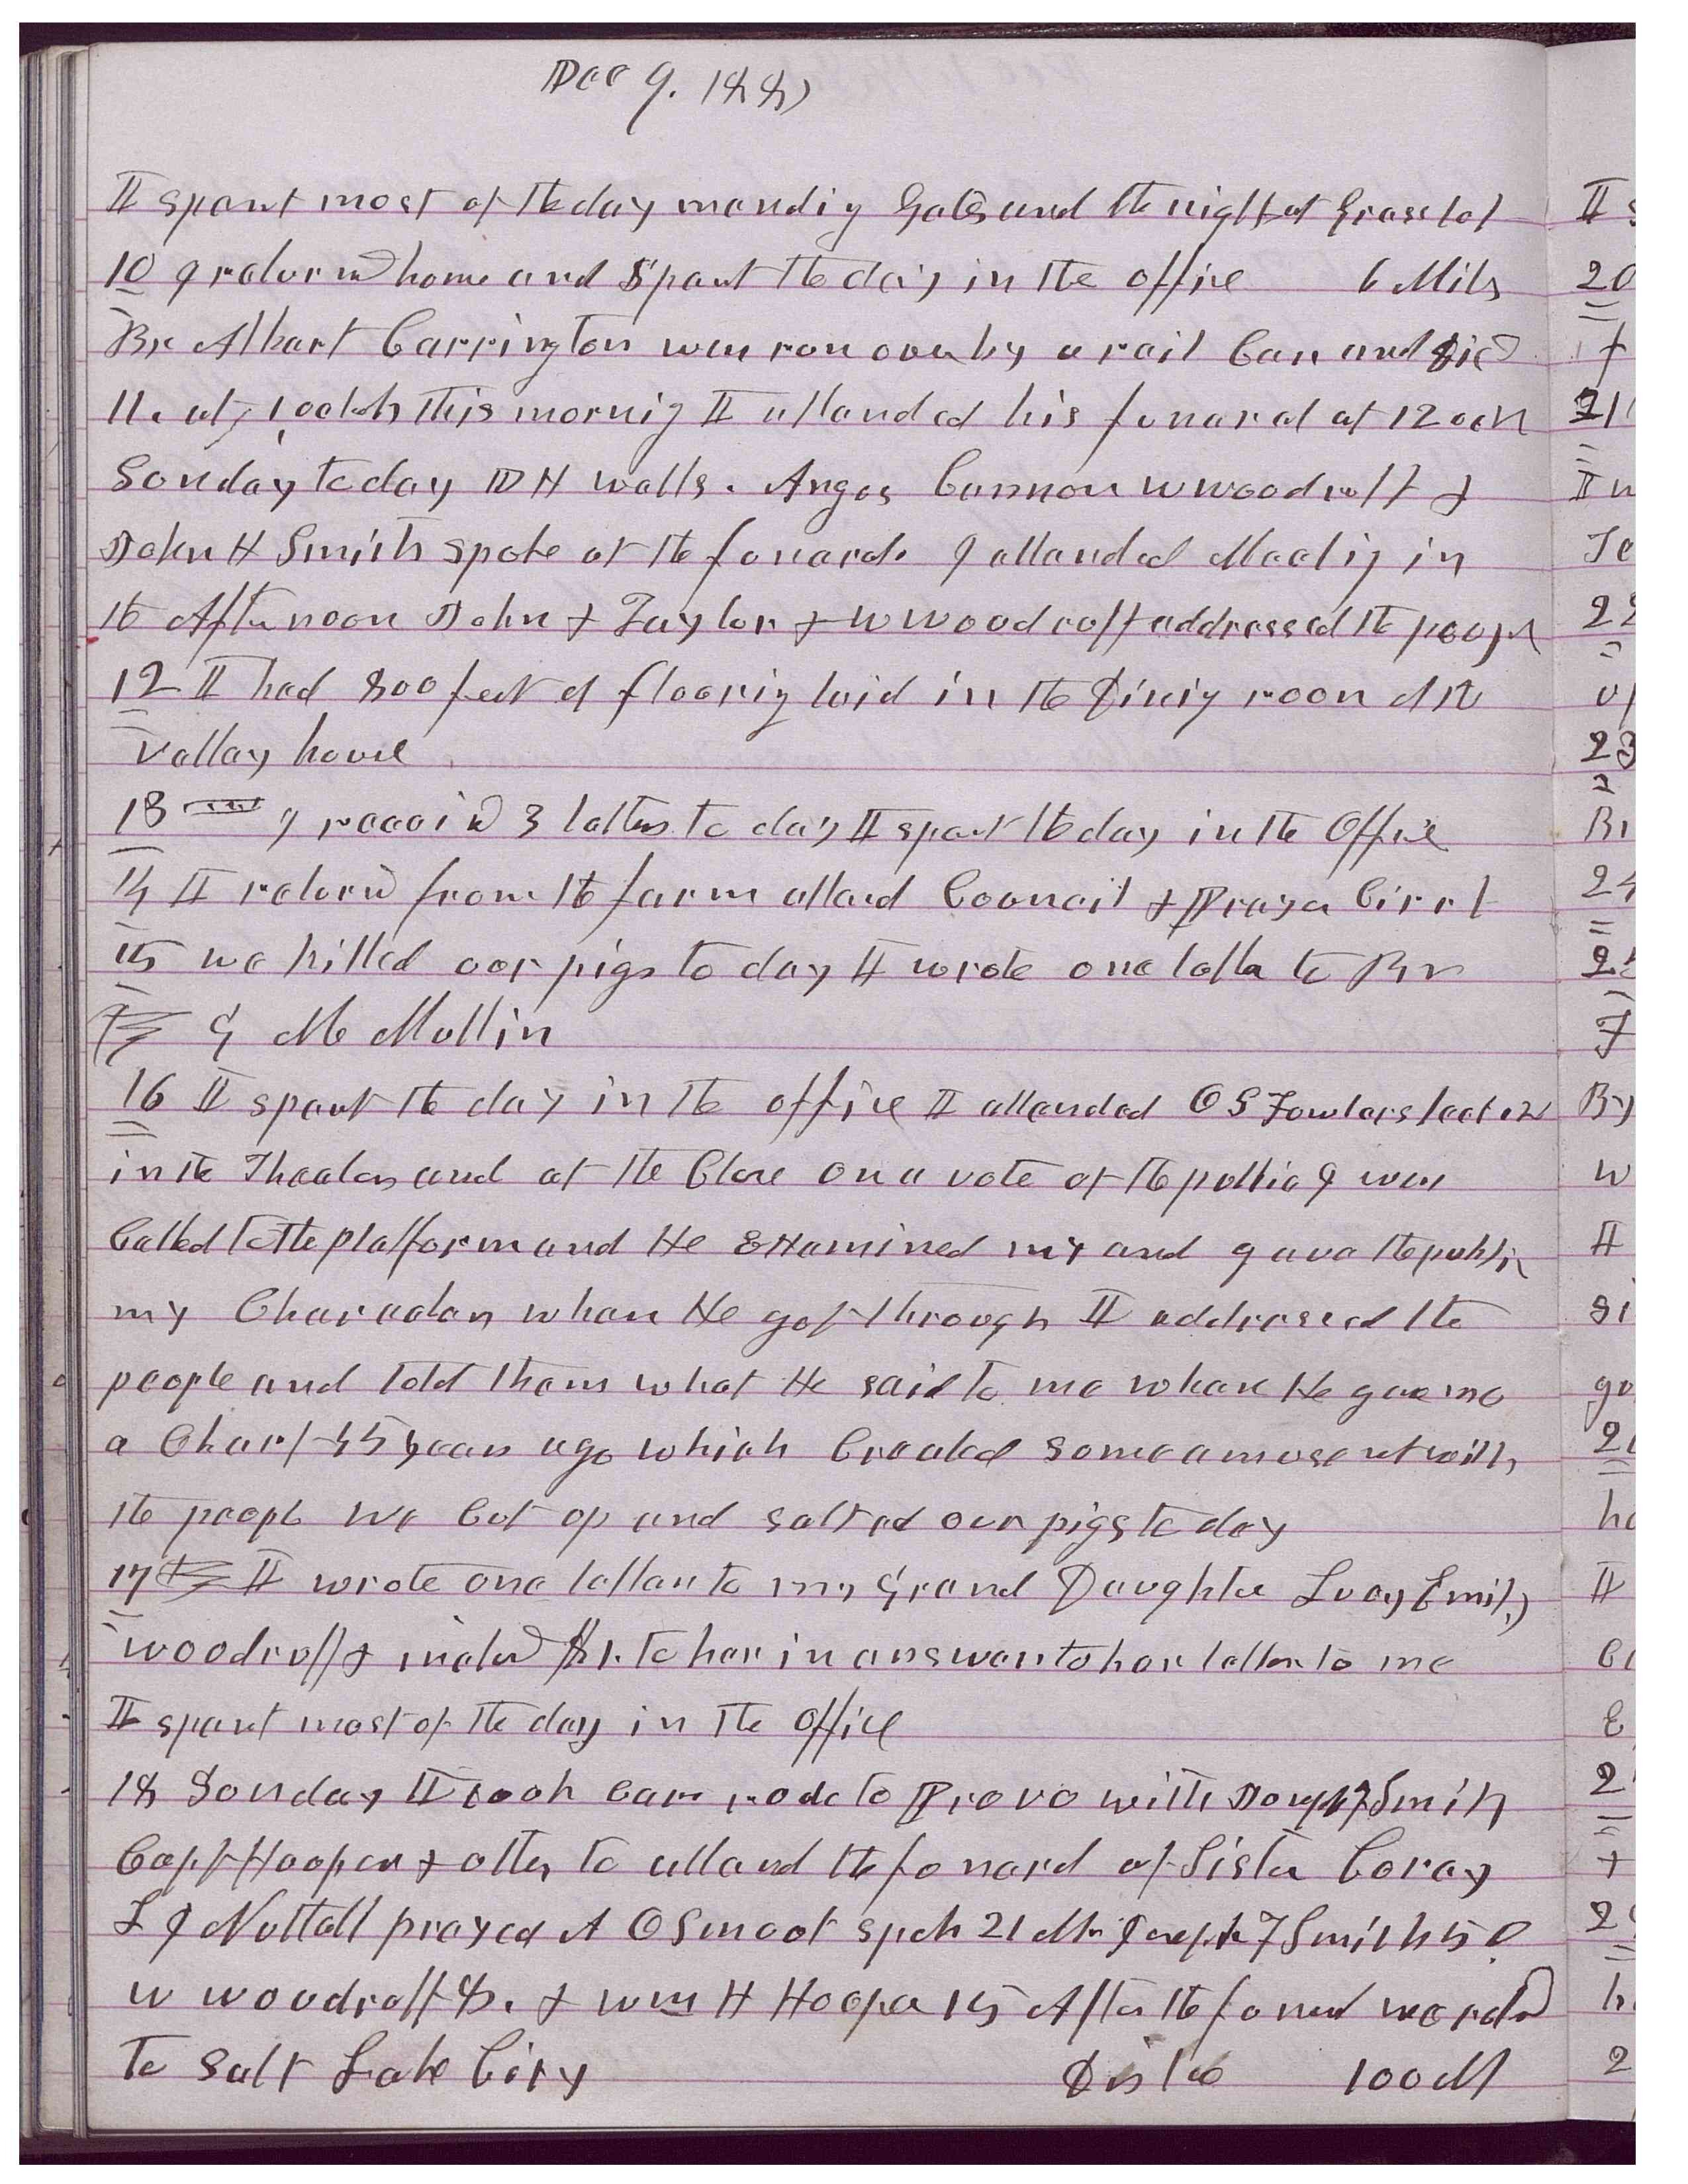 Dec 9. 1881
I spent most of the day mending Gates and the night at Grass lot
10 I returnd home and Spent the day in the office 6 Miles
Br Albert Carrington was run over by a rail Car and died
11. at 1 oclok this mornig I attended his funeral at 12 ock
Sunday to day D H wells. Angus Cannon W Woodruff &
John H Smith spoke at the funeral. I attended Meetig in
the Afternoon John Taylor & W Woodruff addressed the people
12 I had 800 feet of floorig laid in the Dinig room of the
valley house
13 I receivd 3 letters to day I spent the day in the Office
14 I returnd from the farm attend Council & Prayer Circl
15 we killed our pigs to day I wrote one letter to Br
G Mc Mullin
16 I spent the day in the office I attended O S Fowlers lecture
in the Theater and at the Close on a vote of the public I was
Called to the platform and He Examined my and gave the public
my Character when He got through I addressed the
people and told them what He said to me when He gave me
a Chart 45 years ago which Created some amusement with
the people We Cut up and salted our pigs to day
17 I wrote one letter to my Grand Daughter Lucy Emily
Woodruff & incloed $1. to her in answer to her letter to me
I spent most of the day in the office
18 Sunday I took Cars rode to Provo with Joseph F Smith
Capt Hooper & others to attend the funeral of Sister Coray
L J Nuttall prayed A O Smoot spok 21 M Joseph F Smith 50
W Woodruff 8. & Wm H Hooper 15 After the funeral we rode
to Salt Lake City Distce 100 M
II s
20
21
22
23
Br
24
By
W